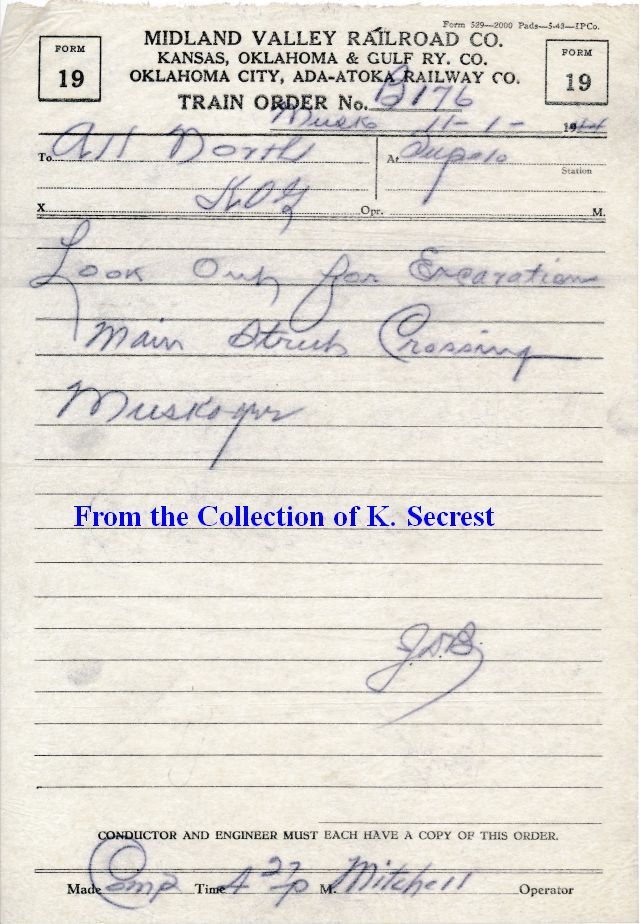 Form 529—2000 Pads—5-43—IPCo.
FORM
19
MIDLAND VALLEY RAILROAD CO.
KANSAS, OKLAHOMA & GULF RY. CO.
OKLAHOMA CITY, ADA-ATOKA RAILWAY CO.
FORM
19
TRAIN ORDER No. B176
Musko 11-1- 1944
To All North At Tupelo
Station
KOG
X Opr. M.
Look Out for Excavation
Main Street Crossing
Muskogee
From the Collection of K. Secrest
J.D.B.
CONDUCTOR AND ENGINEER MUST EACH HAVE A COPY OF THIS ORDER.
Made Comp Time 4 27 p M. Mitchell Operator